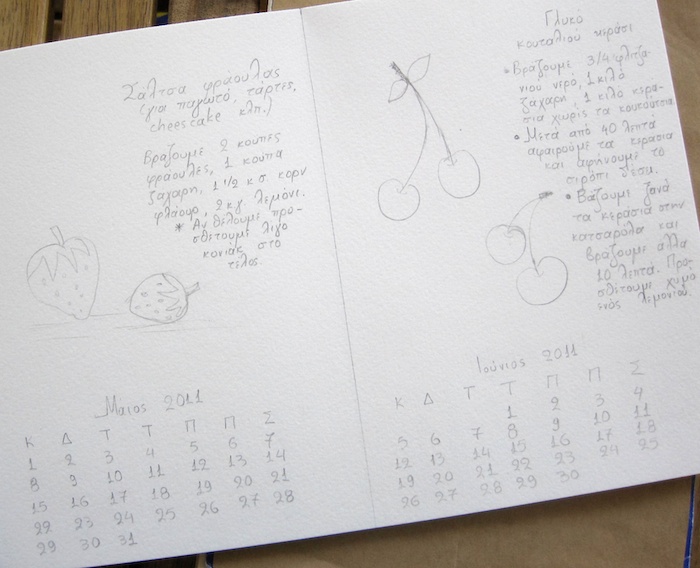 Σάλτσα φράουλας
(για παγωτό, τάρτες,
cheescake κλπ.)
Βράζουμε 2 κούπες
φράουλες, 1 κούπα
ζάχαρη, 1 1/2 κ σ κορν
φλάουρ, 2 κγ. λεμόνι.
* Αν θέλουμε προ-
σθέτουμε λίγο
κονιάκ στο
τέλος.
Μαιος 2011
Κ Δ Τ Τ Π Π Σ
1 2 3 4 5 6 7
8 9 10 11 12 13 14
15 16 17 18 19 20 21
22 23 24 25 26 27 28
29 30 31
Γλυκό
κουταλιού κεράσι
• Βράζουμε 3/4 φλιτζα-
νιού νερό, 1 κιλό
ζάχαρη, 1 κιλό κερά-
σια χωρίς τα κουκούτσια
• Μετά από 40 λεπτά
αφαιρούμε τα κεράσια
και αφήνουμε το
σιρόπι δέσει.
• Βάζουμε ξανά
τα κεράσια στην
κατσαρόλα και
βράζουμε άλλα
10 λεπτά. Προ-
σθέτουμε χυμό
ενός λεμονιού.
Ιούνιος 2011
Κ Δ Τ Τ Π Π Σ
1 2 3 4
5 6 7 8 9 10 11
12 13 14 15 16 17 18
19 20 21 22 23 24 25
26 27 28 29 30